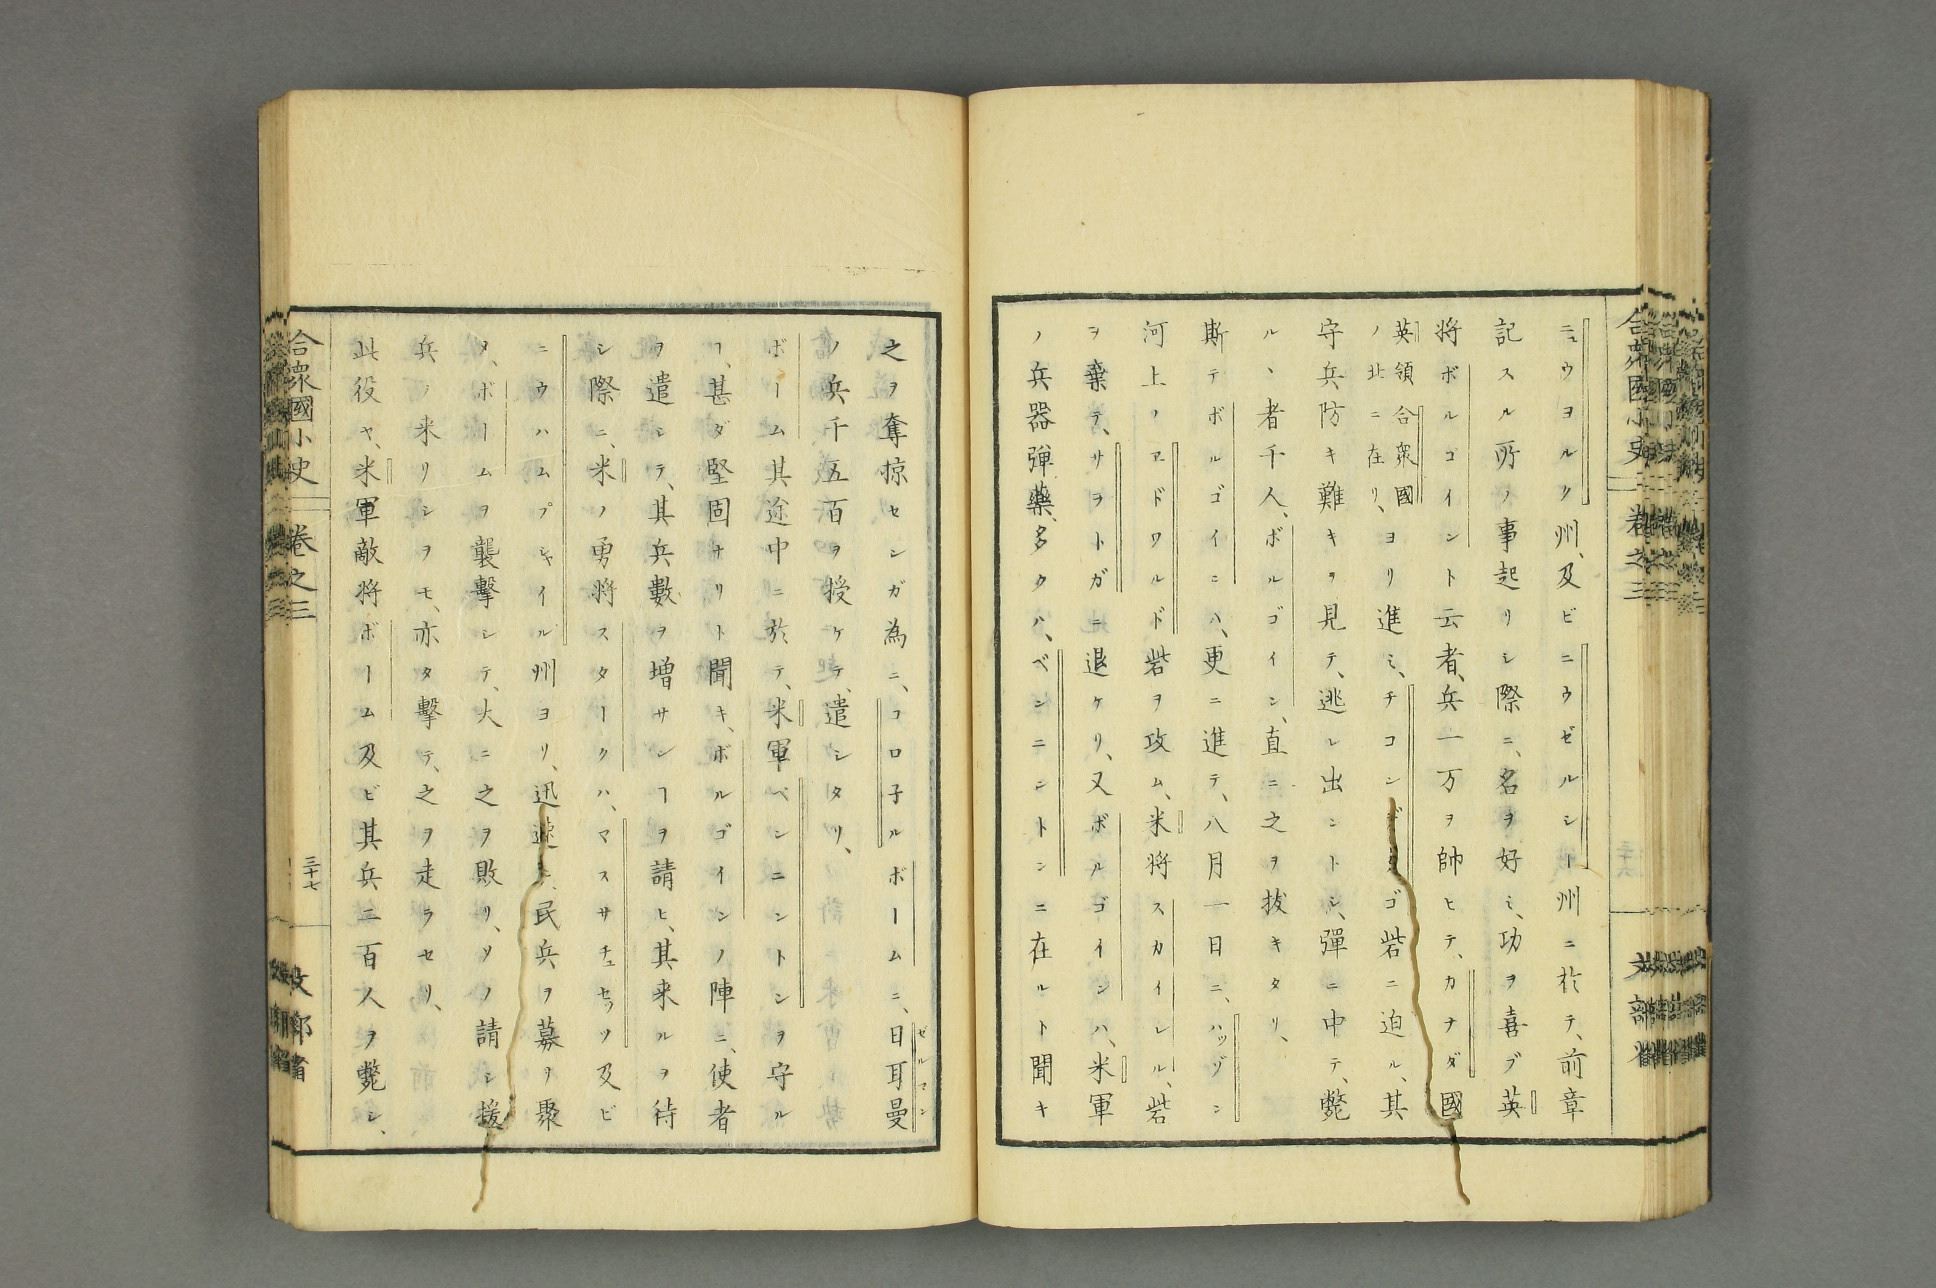 ニュウヨルク州、及ビニウゼルシー州ニ於テ、前章
記スル所ノ事起リシ際ニ、名ヲ好ミ、功ヲ喜ブ英
将ボルゴイント云者、兵一万ヲ帥ヒテ、カナダ國
英領合衆國
ノ北ニ在リ、
ヨリ進ミ、チコンデロゴ砦ニ迫ル、其
守兵防キ難キヲ見テ、逃レ出ントシ、彈ニ中テ、斃
ル、者千人、ボルゴイン、直ニ之ヲ抜キタリ、
斯テボルゴイニハ、更ニ進テ、八月一日ニ、ハッゾン
河上ノアドワルド砦ヲ攻ム、米将スカイレル、砦
ヲ棄テ、サヲトガニ退ケリ、又ボルゴインハ、米軍
ノ兵器彈藥、多クハ、ベンニントンニ在ルト聞キ
合衆國小史
卷之三
文部省
之ヲ奪掠センガ為ニ、コロ子ルボームニ、日耳曼
ゼルマン
ノ兵千五百ヲ授ケテ、遣シタリ、
ボーム其途中ニ於テ、米軍ベンニントンヲ守ル
ヿ、甚ダ堅固ナリト聞キ、ボルゴインノ陣ニ、使者
ヲ遣シテ、其兵數ヲ増サンヿヲ請ヒ、其来ルヲ待
シ際ニ、米ノ勇将スタークハ、マスサチュセッツ及ビ
ニウハムプシャイル州ヨリ、迅速ニ、民兵ヲ募リ聚
メ、ボームヲ襲擊シテ、大ニ之ヲ敗リ、ソノ請シ援
兵ノ来リシヲモ、亦タ擊テ、之ヲ走ラセリ、
此役ヤ、米軍敵将ボーム及ビ其兵二百人ヲ斃シ、
合衆國小史
卷之三
三十七
文部省